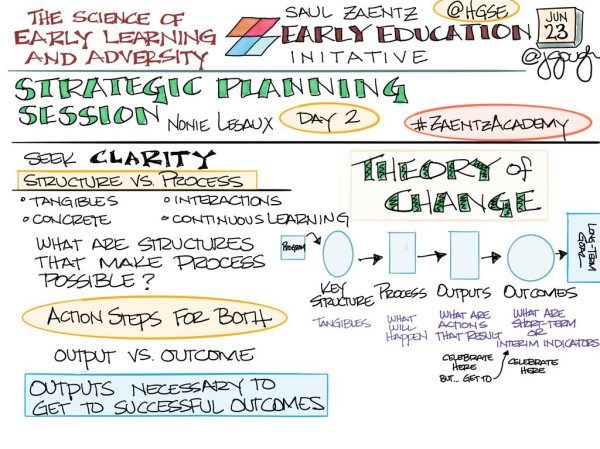 THE SCIENCE OF
EARLY LEARNING
AND ADVERSITY
SAUL ZAENTZ
EARLY EDUCATION
INITATIVE
@HGSE
JUN
23
@jgough
STRATEGIC PLANNING
SESSION NONIE LESAUX DAY 2
#ZAENTZACADEMY
SEEK CLARITY
STRUCTURE VS. PROCESS
• TANGIBLES • INTERACTIONS
• CONCRETE • CONTINUOUS LEARNING
WHAT ARE STRUCTURES
THAT MAKE PROCESS
POSSIBLE?
ACTION STEPS FOR BOTH
OUTPUT VS. OUTCOME
OUTPUTS NECESSARY TO
GET TO SUCCESSFUL OUTCOMES
THEORY of
CHANGE
PROGRAM
KEY
STRUCTURE
TANGIBLES
PROCESS
WHAT
WILL
HAPPEN
OUTPUTS
WHAT ARE
ACTIONS
THAT RESULT
CELEBRATE
HERE
BUT... GET TO
OUTCOMES
WHAT ARE
SHORT-TERM
OR
INTERIM INDICATORS
CELEBRATE
HERE
LONG-TERM
GOAL